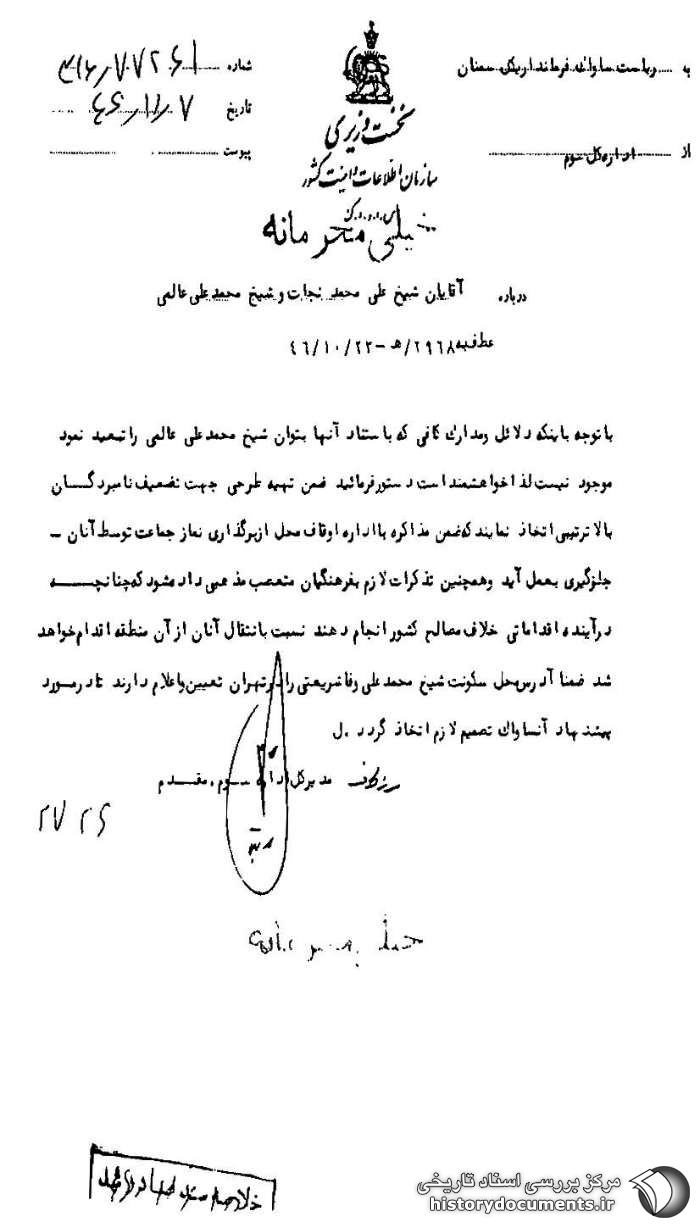 به ریاست ساواک فرمانداریکل سمنان
از اداره کل سوم
نخست وزیری
سازمان اطلاعات و امنیت کشور
س.ا.و.ا.ک
خیلی محرمانه
شماره ۳۱۶/۷۷۲۶۱
تاریخ ۴۶/۱۱/۷
پیوست
درباره آقایان شیخ علی محمد نجات و شیخ محمدعلی عالمی
عطف به ۲۹۶۸/ه‍ -۴۶/۱۰/۲۲
با توجه باینکه دلائل ومدارك کافی که با ستناد آنها بتوان شیخ محمدعلی عالمی را تبعید نمود
موجود نیست لذا خواهشمند است دستور فرمائید ضمن تهیه طرحی جهت تضعیف نامبردگان
بالا ترتیبی اتخاذ نمایند که ضمن مذاکره با اداره اوقاف محل از برگذاری نماز جماعت توسط آنان -
جلوگیری بعمل آید وهمچنین تذکرات لازم بفرهنگیان متعصب مذهبی داده شود که چنانچه
درآینده اقداماتی خلاف مصالح کشور انجام دهند نسبت بانتقال آنان از آن منطقه اقدام خواهد
شد ضمنا آدرس محل سکونت شیخ محمدعلی وفا شریعتی را در تهران تعیین واعلام دارند تا در مورد
پیشنهاد آنساواك تصمیم لازم اتخاذ گردد .ل
مدیرکل اداره سوم . مقدم
۲۷۲۶
خیلی محرمانه
مرکز بررسی اسناد تاریخی
historydocuments.ir